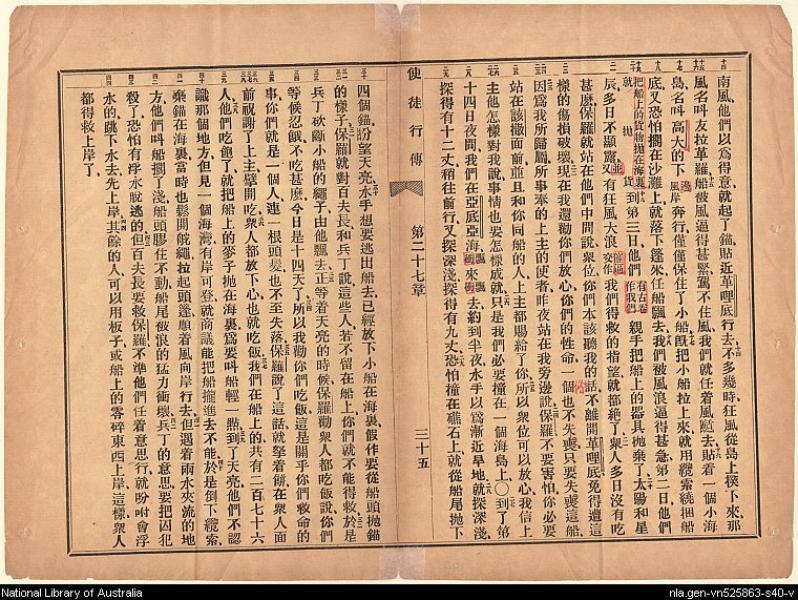 南風他們以爲得意就起了錨貼近革哩底行去不多幾時狂風從島上撲下來那
風名叫友拉革羅船被風逼得甚緊駕不住風我們就任着風颳去貼着一個小海
島名叫高大的下風岸奔行僅僅保住了小船旣把小船拉上來就用纜索繞捆船
底又恐怕擱在沙灘上就落下篷來任船飄去我們被風浪逼得甚急第二日他們
把船上的貨物拋在海裏到第三日他們親手把船上的器具拋棄了太陽和星
辰多日不顯露又有狂風大浪我們得救的指望就都絕了衆人多日沒有吃
甚麼保羅就站在他們中間說衆位你們本該聽我的話不離開革哩底免得遭這
樣的傷損破壞現在我還勸你們放心你們的性命一個也不失喪只要失喪這船
因爲我所歸屬所事奉的上主的使者昨夜站在我旁邊說保羅不要害怕你必要
站在該撒面前並且和你同船的人上主都賜給了你所以衆位可以放心我信上
主他怎樣對我說事情也要怎樣成就只是我們必要撞在一個海島上〇到了第
十四日夜間我們在亞底亞海飄來飄去約到半夜水手以爲漸近旱地就探深淺
探得有十二丈稍往前行又探深淺探得有九丈恐怕撞在礁石上就從船尾拋下
使徒行傳 第二十七章 三十五
四個錨盼望天亮水手想要逃出船去已經放下小船在海裏假作要從船頭拋錨
的樣子保羅就對百夫長和兵丁說這些人若不留在船上你們就不能得救於是
兵丁砍斷小船的繩子由他飄去正等着天亮的時候保羅勸衆人都吃飯說你們
等候忍餓不吃甚麼今日是十四天了所以我勸你們吃飯這是關乎你們救命的
事你們就是一個人連一根頭髮也不至失落保羅說了這話就拏着餅在衆人面
前祝謝了上主擘開吃衆人都放下心也就吃飯我們在船上的共有二百七十六
人他們吃飽了就把船上的麥子拋在海裏爲要叫船輕一點到了天亮他們不認
識那個地方但見一個海灣有岸可登就商議能把船攏進去不能於是倒下纜索
棄錨在海裏當時也鬆開舵繩拉起頭篷順着風向岸行去但遇着兩水夾流的地
方他們叫船擱了淺船頭膠住不動船尾被浪的猛力衝壞兵丁的意思要把囚犯
殺了恐怕有浮水脫逃的但百夫長要救保羅不準他們任着意思行就吩咐會浮
水的跳下水去先上岸其餘的人可以用板子或船上的零碎東西上岸這樣衆人
都得救上岸了
National Library of Australia
nla.gen-vn525863-s40-v